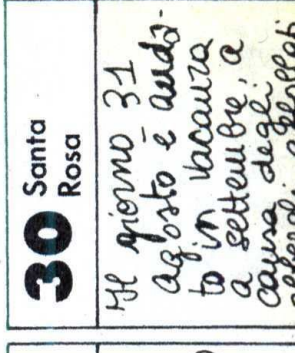 30 Santa
Rosa
Il giorno 31
agosto è anda-
to in vacanza
a settembre, a
causa degli